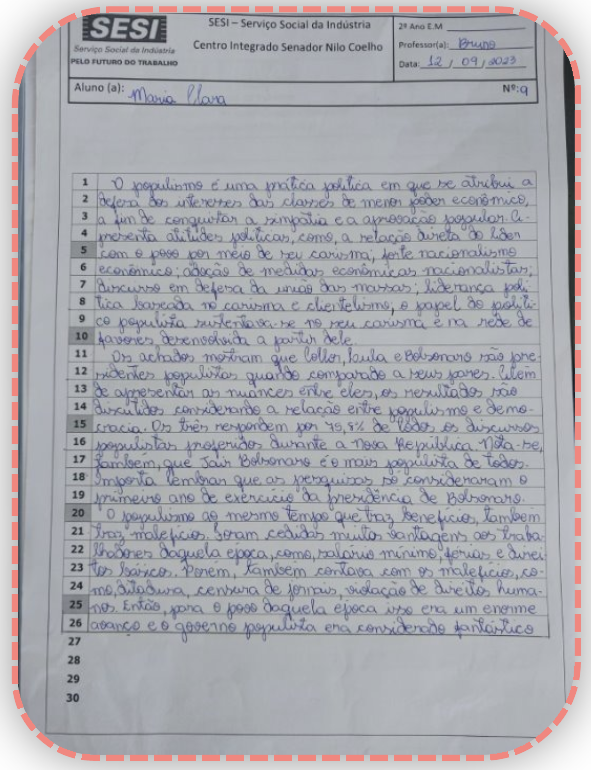 SESI
Serviço Social da Indústria
PELO FUTURO DO TRABALHO
SESI – Serviço Social da Indústria
Centro Integrado Senador Nilo Coelho
2º Ano E.M
Professor(a): Bruno
Data: 12 / 09 / 2023
Aluno (a): Maria Clara
Nº: 9
1 O populismo é uma prática política em que se atribui a
2 defesa dos interesses das classes de menor poder econômico,
3 a fim de conquistar a simpatia e a aprovação popular. A-
4 presenta atitudes políticas, como, a relação direta do líder
5 com o povo por meio de seu carisma; forte nacionalismo
6 econômico; adoção de medidas econômicas nacionalistas;
7 discurso em defesa da união das massas; liderança polí-
8 tica baseada no carisma e clientelismo; o papel do políti-
9 co populista sustentava-se no seu carisma e na rede de
10 favores desenvolvida a partir dele.
11 Os achados mostram que Collor, Lula e Bolsonaro são pre-
12 sidentes populistas quando comparado a seus pares. Além
13 de apresentar as nuances entre eles, os resultados são
14 discutidos considerando a relação entre populismo e demo-
15 cracia. Os três respondem por 75,8% de todos os discursos
16 populistas proferidos durante a Nova República. Nota-se,
17 também, que Jair Bolsonaro é o mais populista de todos.
18 Importa lembrar que as pesquisas só consideraram o
19 primeiro ano de exercício da presidência de Bolsonaro.
20 O populismo ao mesmo tempo que traz benefícios, também
21 traz malefícios. Foram cedidas muitas vantagens aos traba-
22 lhadores daquela epoca, como, salário mínimo, férias e direi-
23 tos básicos. Porém, também contava com os malefícios, co-
24 mo, ditadura, censura de jornais, violação de direitos huma-
25 nos. Então, para o povo daquela época isso era um enorme
26 avanço e o governo populista era considerado fantástico
27
28
29
30